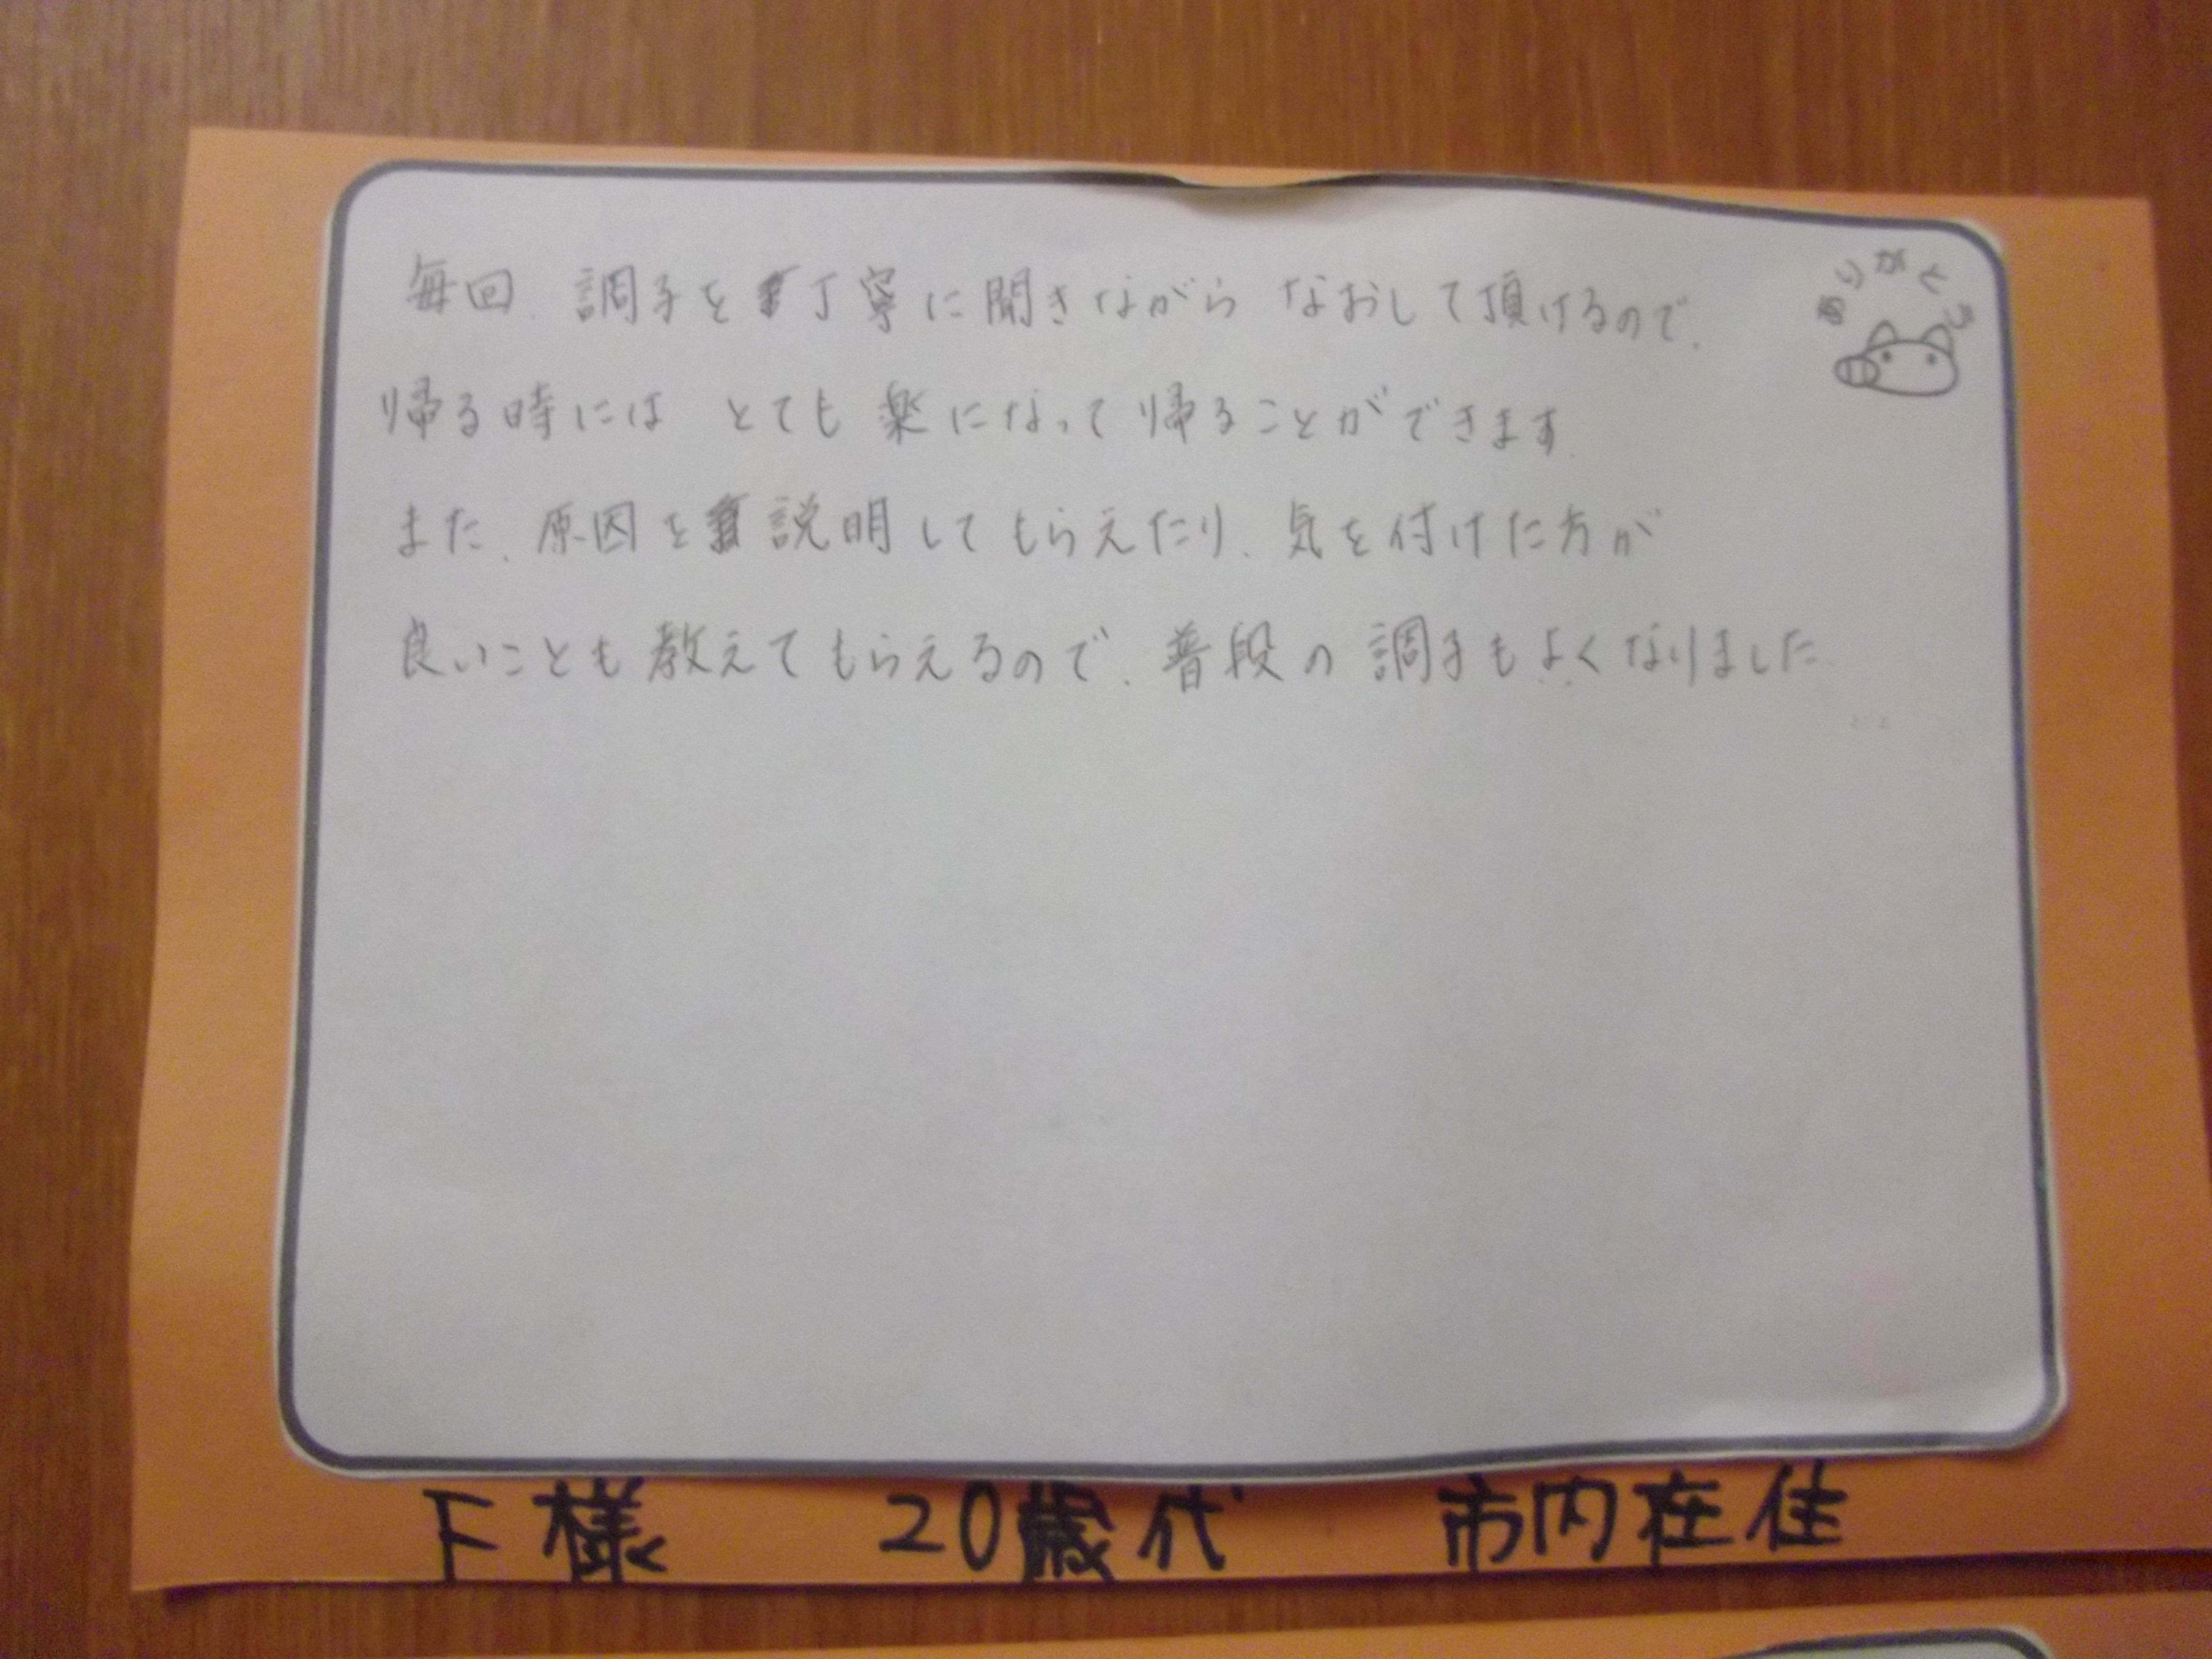 毎回、調子を丁寧に聞きながら なおして頂けるので、
帰る時には とても楽になって帰ることができます。
また、原因を説明してもらえたり、気を付けた方が
良いことも教えてもらえるので、普段の調子もよくなりました。
ありがとう
F様 20歳代 市内在住